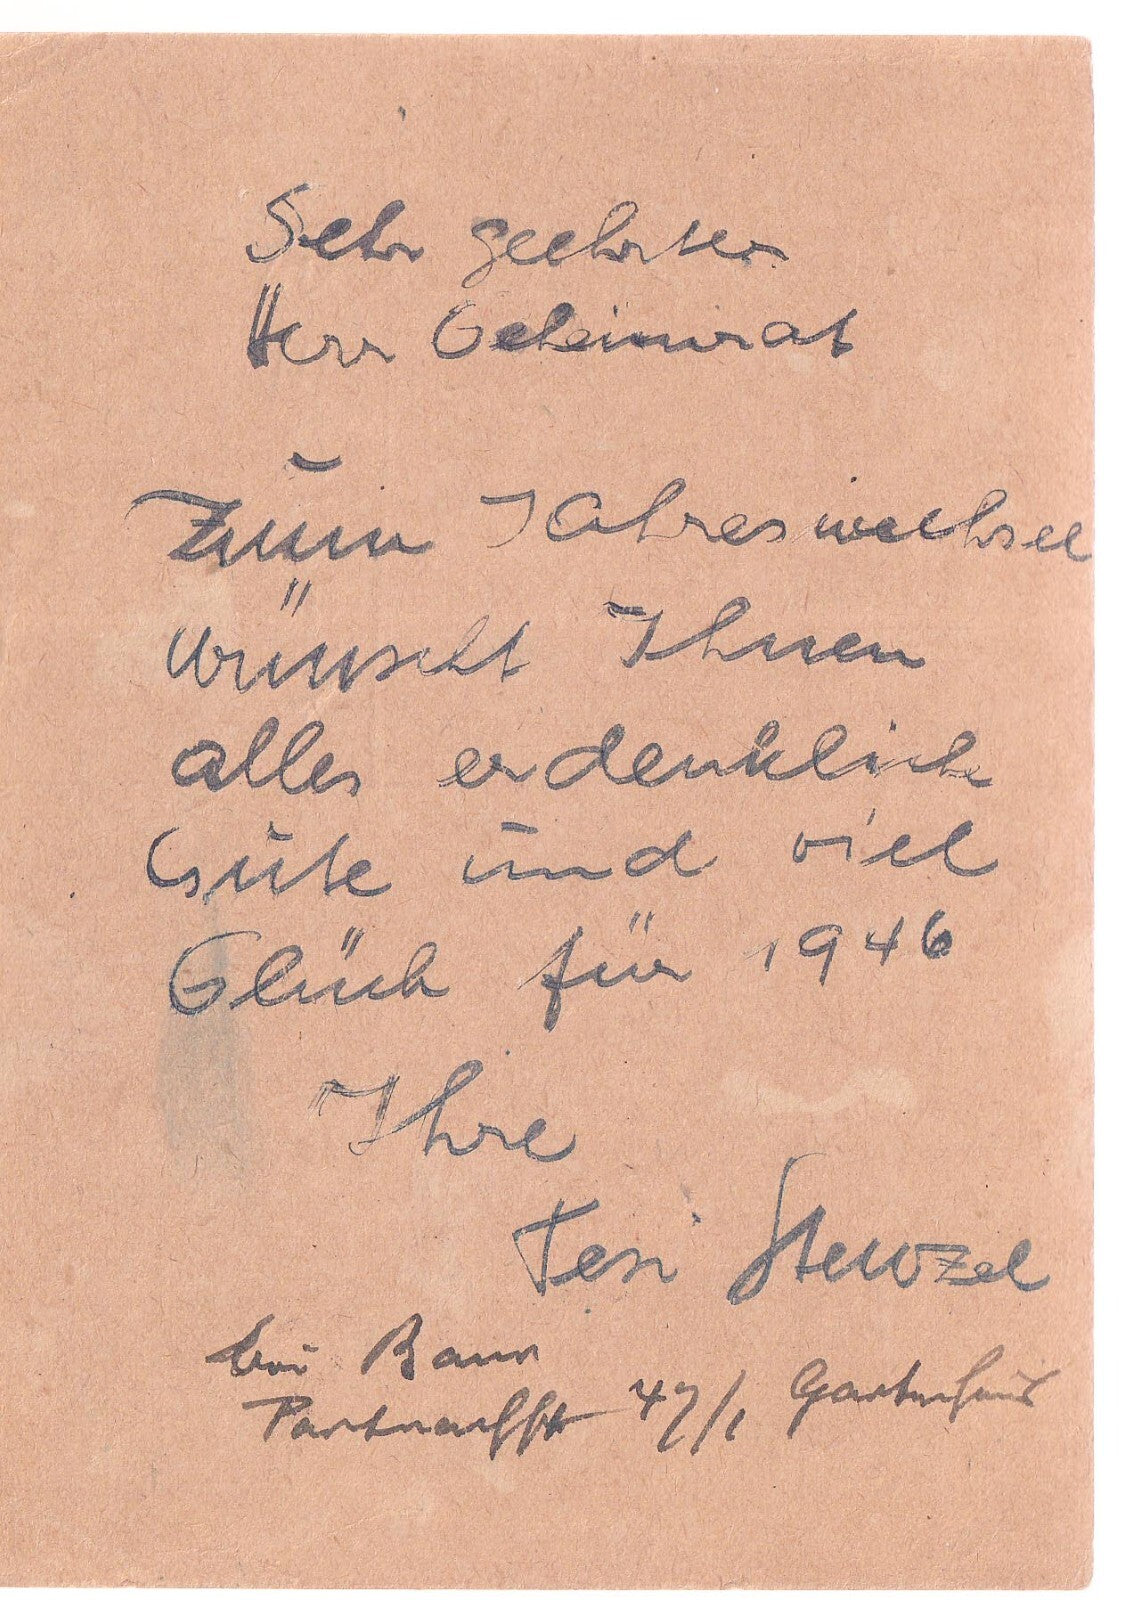 Sehr geehrter
Herr Geheimrat
Zum Jahreswechsel
wünscht Ihnen
alles erdenkliche
Gute und viel
Glück für 1946
Ihre
Resi Stenzel
bei Baur
47/1 Gartenhaus